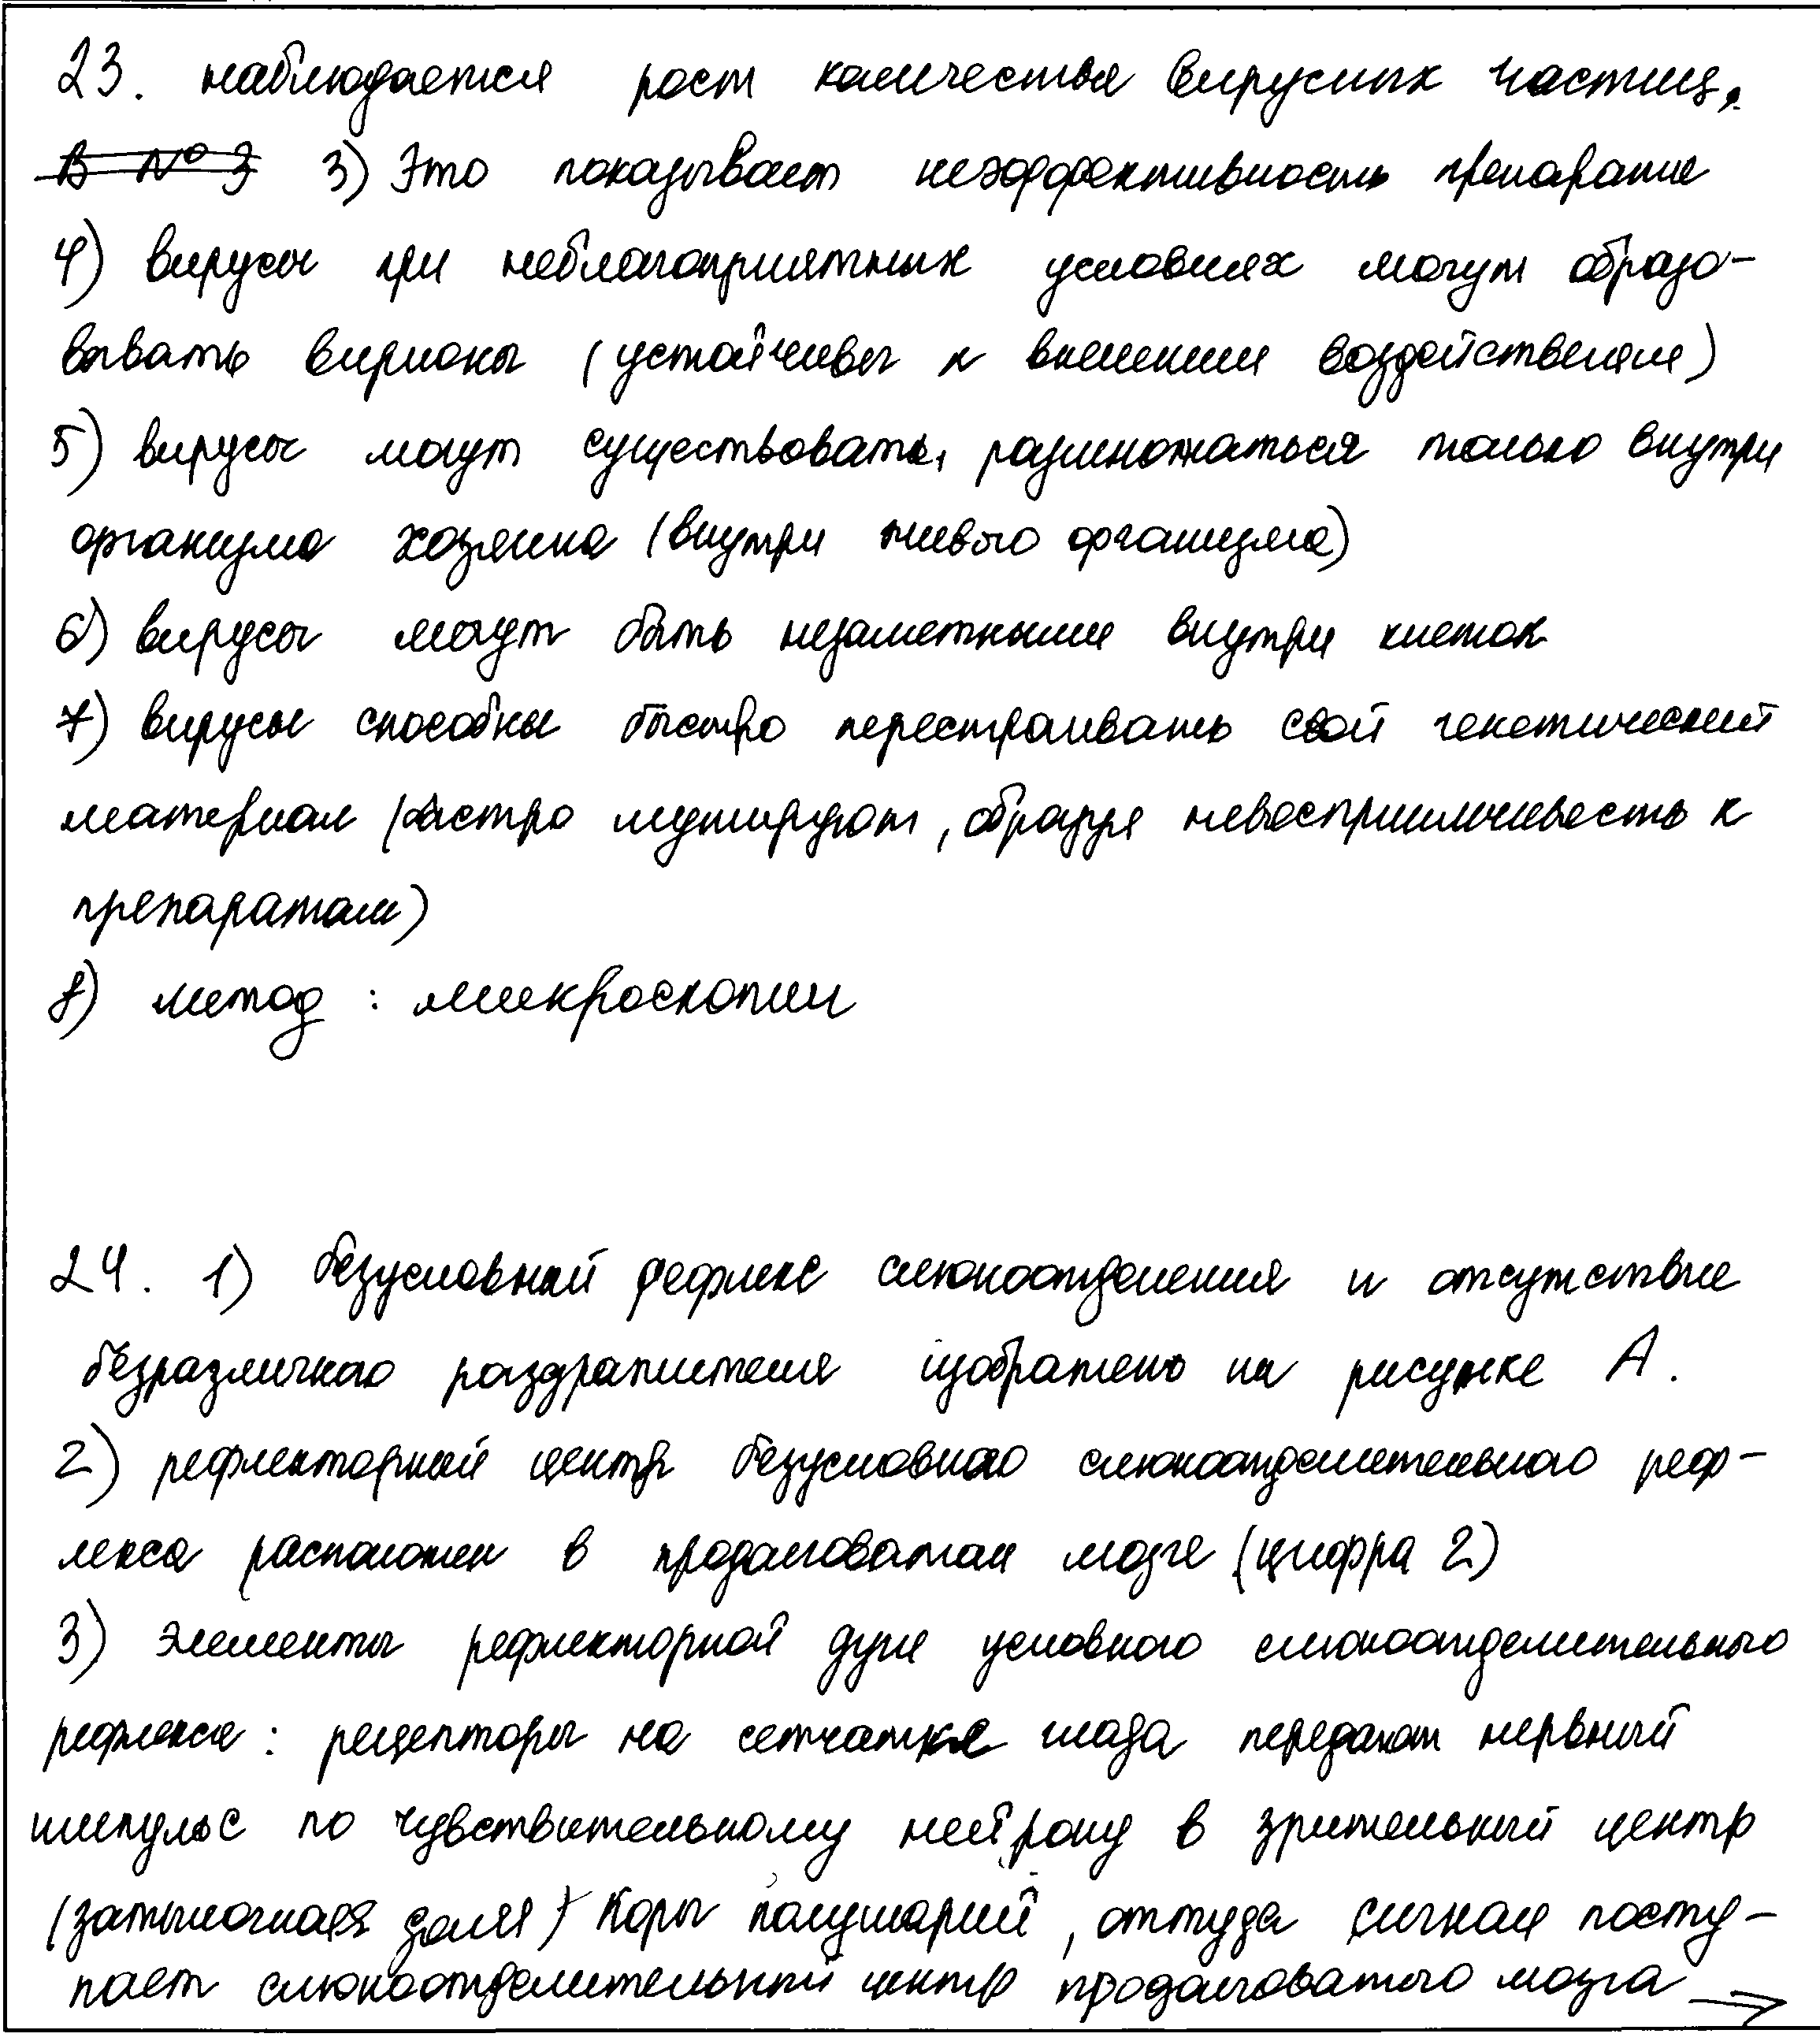 23. наблюдается рост количества вирусных частиц.
В № 3 3) Это показывает неэффективность препарата
4) вирусы при неблагоприятных условиях могут образо-
вывать вирионы (устойчивы к внешним воздействиям)
5) вирусы могут существовать, размножаться только внутри
организма хозяина (внутри живого организма)
6) вирусы могут быть незаметными внутри клеток
7) вирусы способны быстро перестраивать свой генетический
материал (быстро мутируют, образуя невосприимчивость к
препаратам)
8) метод : микроскопии
24. 1) безусловный рефлекс слюноотделения и отсутствие
безразличного раздражителя изображено на рисунке А.
2) рефлекторный центр безусловного слюноотделительного реф-
лекса расположен в продолговатом мозге (цифра 2)
3) Элементы рефлекторной дуги условного слюноотделительного
рефлекса : рецепторы на сетчатке глаза передают нервный
импульс по чувствительному нейрону в зрительный центр
(затылочная доля) коры полушарий, оттуда сигнал посту-
пает слюноотделительный центр продолговатого мозга →